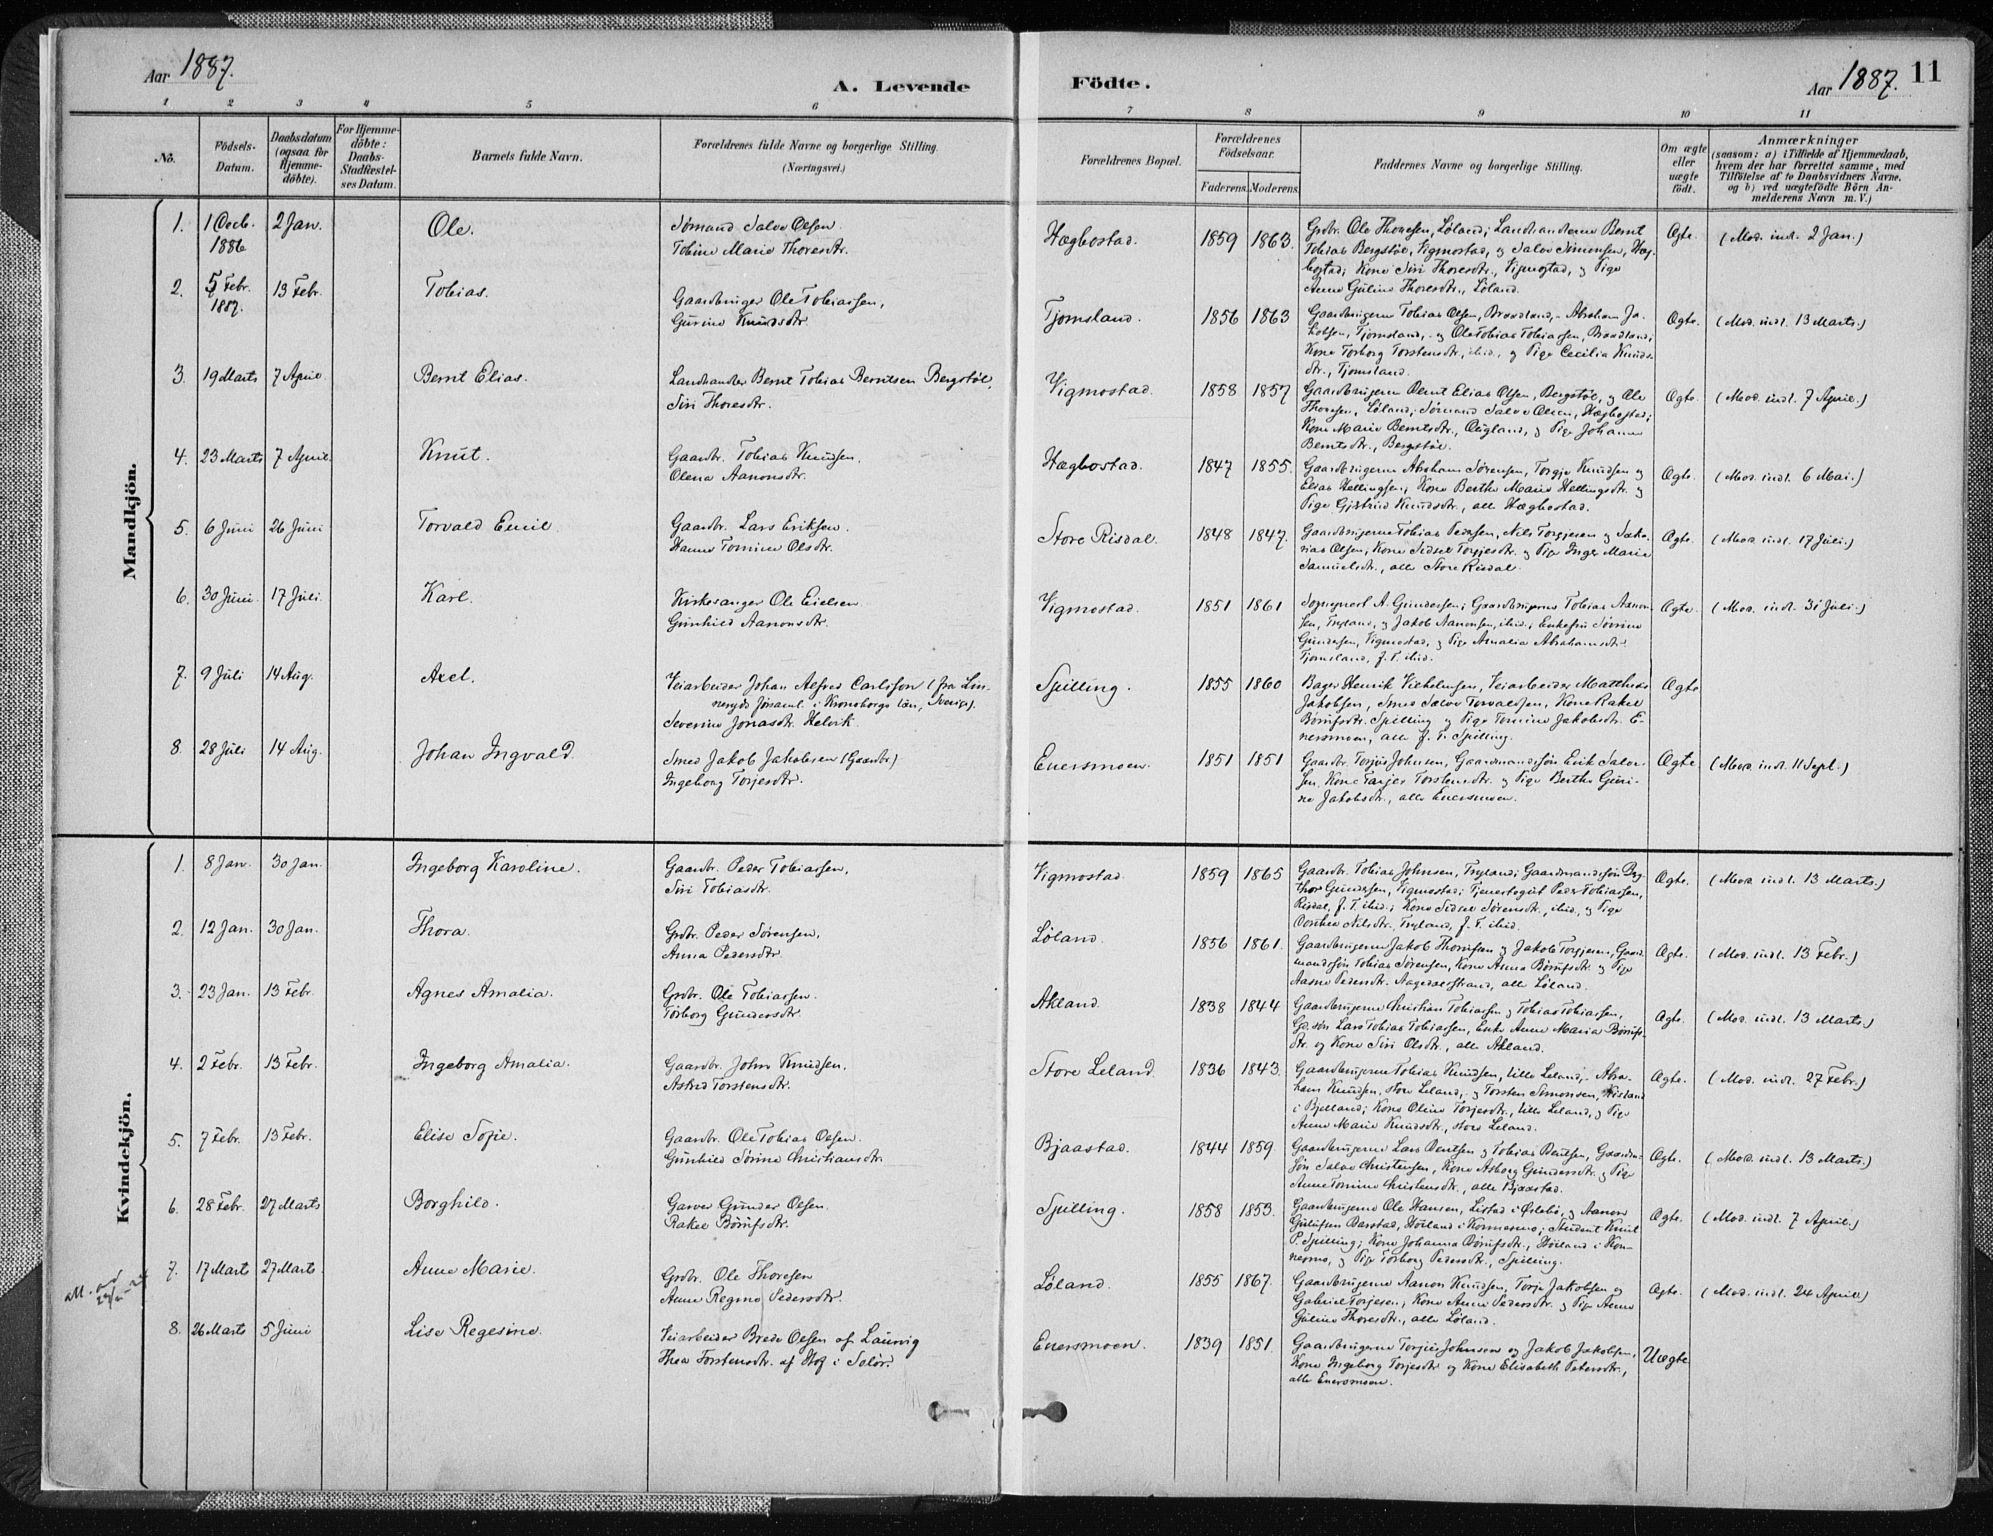 Aar 1887.
A. Levende Födte.
Aar 1887. 11
1 2 3 4 5 6 7 8 9 10 11
No.
Födsels-Datum.
Daabsdatum (ogsaa for Hjemme-döbte).
For Hjemme-döbte: Daabs-Stadfæstel-ses Datum.
Barnets fulde Navn.
Forældrenes fulde Navne og borgerlige Stilling. (Næringsvei.)
Forældrenes Bopæl.
Forældrenes Födselsaar.
Faderens. Moderens.
Faddernes Navne og borgerlige Stilling.
Om ægte eller uægte födt.
Anmærkninger
(saasom: a) i Tilfælde af Hjemmedaab, hvem der har forrettet samme, med Tilföielse af to Daabsvidners Navne, og b) ved uægtefödte Börn An-melderens Navn m. V.)
Mandkjön.
1. 1 Decb. 1886 2 Jan. Ole.
Sørmund Salve Olsen.
Tobine Marie Thoresdtr.
Hægbostad. 1859 1863.
Grdbr. Ole Thoresen, Løland; Landhandlerne Bernt
Tobias Bergstøl, Vigmostad, og Salve Simonsen, Hæg-
bostad; Kone Siri Thoresdtr., Vigmostad, og Pige
Anne Guline Thoresdtr., Løland.
Ægte. (Mod. indl. 2 Jan.)
2. 5 Febr. 1887. 13 Febr. Tobias.
Gaardbruger Ole Tobiassen,
Gurine Knudsdtr.
Tjomsland. 1856 1863
Gaardbrugerne Tobias Olsen, Brædland, Abraham Ja-
kobsen, Tjomsland, og Ole Tobias Tobiassen, Brædland;
Kone Torborg Torstensdtr., ibid., og Pige Cecilia Knuds-
dtr., Tjomsland.
Ægte. (Mod. indl. 13 Marts.)
3. 19 Marts 7 April Bernt Elias.
Landhandler Bernt Tobias Berntsen Bergstøl,
Siri Thoresdtr.
Vigmostad. 1858 1857
Gaardbrugerne Bernt Elias Olsen, Bergstøl, og Ole
Thoresen, Løland; Sørmund Salve Olsen, Hægbostad;
Kone Marie Berntsdtr., Øigland, og Pige Johanne
Berntsdtr., Bergstøl.
Ægte. (Mod. indl. 7 April.)
4. 23 Marts 7 April. Knut.
Gaardbr. Tobias Knudsen.
Olena Aanonsdtr.
Hægbostad. 1847 1855.
Gaardbrugerne Abraham Sørensen, Torgje Knudsen og
Elias Hellingsen; Kone Berthe Marie Hellingsdtr. og
Pige Gjertrud Knudsdtr., alle Hægbostad.
Ægte. (Mod. indl. 6 Mai.)
5. 6 Juni 26 Juni Torvald Emil.
Gaardbr. Lars Eriksen.
Hanne Tomine Olsdtr.
Store Risdal. 1848 1847.
Gaardbrugerne Tobias Pedersen, Nils Torgjesen og Saka-
rias Olsen; Kone Sidsel Torgjesdtr. og Pige Inger Marie
Samuelsdtr., alle Store Risdal.
Ægte. (Mod. indl. 17 Juli.)
6. 30 Juni. 17 Juli. Karl.
Kirkesanger Ole Eielsen
Gunhild Aanonsdtr.
Vigmostad. 1851 1861
Sogneprest A. Gundersen; Gaardbrugerne Tobias Aanon-
sen, Tryland, og Jakob Aanonsen, ibid.; Enkefru Sørine
Gundersen, Vigmostad, og Pige Amalia Abrahamsdtr.
Tjomsland, f. T. ibid.
Ægte. (Mod. indl. 31 Juli.)
7. 9 Juli 14 Aug. Axel.
Veiarbeider Johan Alfred Carlsson (fra Lin-
neryds församl. i Kronobergs län, Sverige).
Severine Jonasdtr. Helvik.
Spilling. 1855 1860
Bager Henrik Vilhelmsen, Veiarbeider Matthias
Jakobsen, Smed Salve Torvaldsen, Kone Rakel
Børufsdtr. Spilling og Pige Tomine Jakobsdtr. E-
nersmoen, alle f. T. Spilling.
Ægte
8. 28 Juli 14 Aug. Johan Ingvald.
Smed Jakob Jakobsen (Gaardbr.)
Ingeborg Torjesdtr.
Enersmoen. 1851 1851
Gaardbr. Torjus Johnsen, Gaardmandssøn Erik Salve-
sen, Kone Torjer Torstensdtr. og Pige Berthe Guri-
ne Jakobsdtr., alle Enersmoen.
Ægte (Mod. indl. 11 Sept.)
Kvindekjön.
1. 8 Jan. 30 Jan. Ingeborg Karoline.
Gaardbr. Peder Tobiassen,
Siri Tobiasdtr.
Vigmostad. 1859 1865
Gaardbr. Tobias Johnsen, Tryland; Gaardmandssøn Dag-
thor Gundersen, Vigmostad; Tjenestegut Peder Tobiassen,
Risdal, f. T. ibid.; Kone Sidsel Sørensdtr., ibid., og Pige
Dorthea Nilsdtr., Tryland, f. T. ibid.
Ægte. (Mod. indl. 13 Marts.)
2. 12 Jan. 30 Jan. Thora.
Grdbr. Peder Sørensen,
Anna Pedersdtr.
Løland. 1856 1861.
Gaardbrugerne Jakob Thomsen og Jakob Torgjesen, Gaard-
mandssøn Tobias Sørensen, Kone Anna Børufsdtr. og Pige
Aasne Pedersdtr. Aagedalstrand, alle Løland.
Ægte. (Mod. indl. 13 Febr.)
3. 23 Jan. 13 Febr. Agnes Amalia.
Grdbr. Ole Tobiassen.
Torborg Gundersdtr.
Akland. 1838 1844
Gaardbrugerne Christian Tobiassen og Tobias Tobiassen,
Gd.søn Lars Tobias Tobiassen, Enke Anne Maria Børufs-
dtr. og Kone Siri Olsdtr., alle Akland.
Ægte. (Mod. indl. 13 Marts.)
4. 2 Febr. 13 Febr. Ingeborg Amalia.
Gaardbr. John Knudsen,
Astrid Torstensdtr.
Store Leland 1836 1843.
Gaardbrugerne Tobias Knudsen, Lille Leland, Abra-
ham Knudsen, store Leland, og Torsten Simonsen,
i Bjelland; Kone Oline Torjesdtr., lille Leland, og Pige
Anne Marie Knudsdtr., store Leland.
Ægte. (Mod. indl. 27 Febr.)
5. 7 Febr. 13 Febr. Elise Sofie.
Gaardbr. Ole Tobias Olsen.
Gunhild Sørine Christiansdtr.
Bjaastad. 1844 1859.
Gaardbrugerne Lars Berntsen og Tobias Berntsen, Gaardm.-
søn Salve Christensen, Kone Asborg Gundersdtr. og Pige
Anne Tomine Christensdtr., alle Bjaastad.
Ægte. (Mod. indl. 13 Marts.)
6. 28 Febr. 27 Marts Borghild.
Garver Gunder Olsen.
Rakel Børufsdtr.
Spilling. 1858 1853.
Gaardbrugerne Ole Hansen, Listad i Øslebø, og Aanon
Gulufsen Barstad, Høiland i Konnesmo; Student Knut
P. Spilling; Kone Johanna Børufsdtr., Høiland i Kon-
nesmo, og Pige Torborg Pedersdtr., Spilling.
Ægte. (Mod. indl. 7 April)
7. 17 Mart 27 Marts. Anne Marie.
Grdbr. Ole Thoresen
Anne Regine Pedersdtr.
Løland. 1855 1867.
Gaardbrugerne Aanon Knudsen, Torje Jakobsen og
Gabriel Torjesen; Kone Anne Pedersdtr. og Pige Anne
Guline Thoresdtr., alle Løland.
Ægte. (Mod. indl. 24 April.)
8. 26 Marts 5 Juni Lise Regesine.
Veiarbeider Brede Olsen af Laurvig
Thea Torstensdtr. af Hof i Solør.
Enersmoen. 1839 1851.
Gaardbrugerne Torjus Johnsen og Jakob Jakobsen,
Kone Ingeborg Torjesdtr og Kone Elisabeth Petersdtr.,
alle Enersmoen.
Uægte